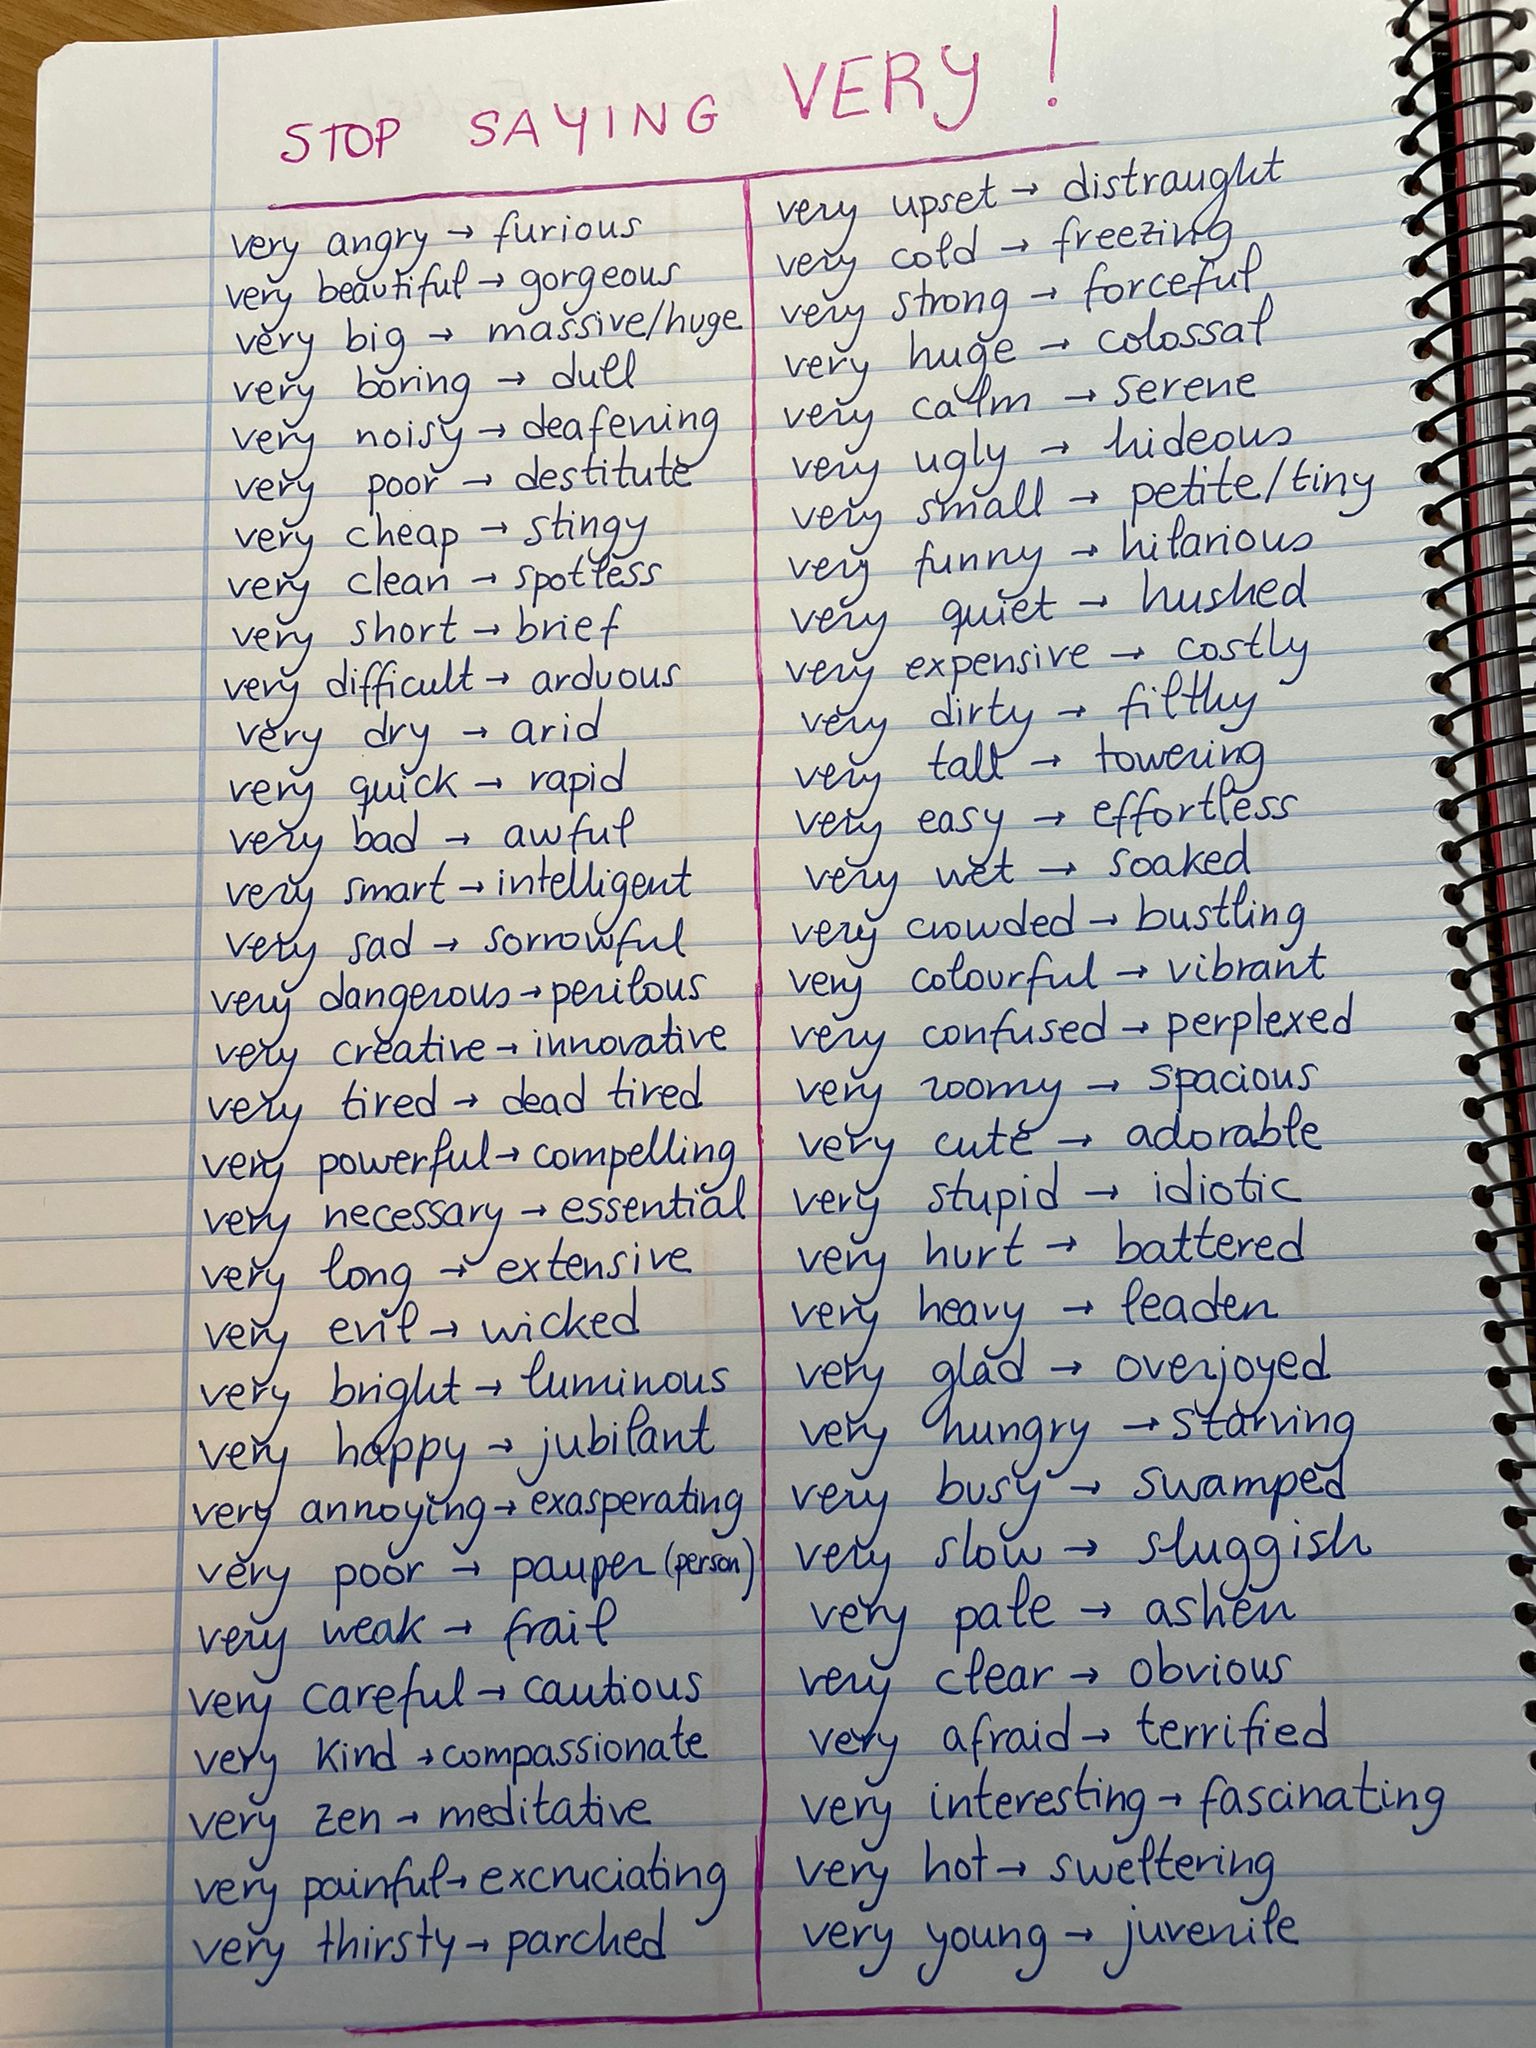 STOP SAYING VERY !
very angry → furious
very beautiful → gorgeous
very big → massive/huge
very boring → dull
very noisy → deafening
very poor → destitute
very cheap → stingy
very clean → spotless
very short → brief
very difficult → arduous
very dry → arid
very quick → rapid
very bad → awful
very smart → intelligent
very sad → sorrowful
very dangerous → perilous
very creative → innovative
very tired → dead tired
very powerful → compelling
very necessary → essential
very long → extensive
very evil → wicked
very bright → luminous
very happy → jubilant
very annoying → exasperating
very poor → pauper (person)
very weak → frail
very careful → cautious
very kind → compassionate
very zen → meditative
very painful → excruciating
very thirsty → parched
very upset → distraught
very cold → freezing
very strong → forceful
very huge → colossal
very calm → serene
very ugly → hideous
very small → petite/tiny
very funny → hilarious
very quiet → hushed
very expensive → costly
very dirty → filthy
very tall → towering
very easy → effortless
very wet → soaked
very crowded → bustling
very colourful → vibrant
very confused → perplexed
very roomy → spacious
very cute → adorable
very stupid → idiotic
very hurt → battered
very heavy → leaden
very glad → overjoyed
very hungry → starving
very busy → swamped
very slow → sluggish
very pale → ashen
very clear → obvious
very afraid → terrified
very interesting → fascinating
very hot → sweltering
very young → juvenile